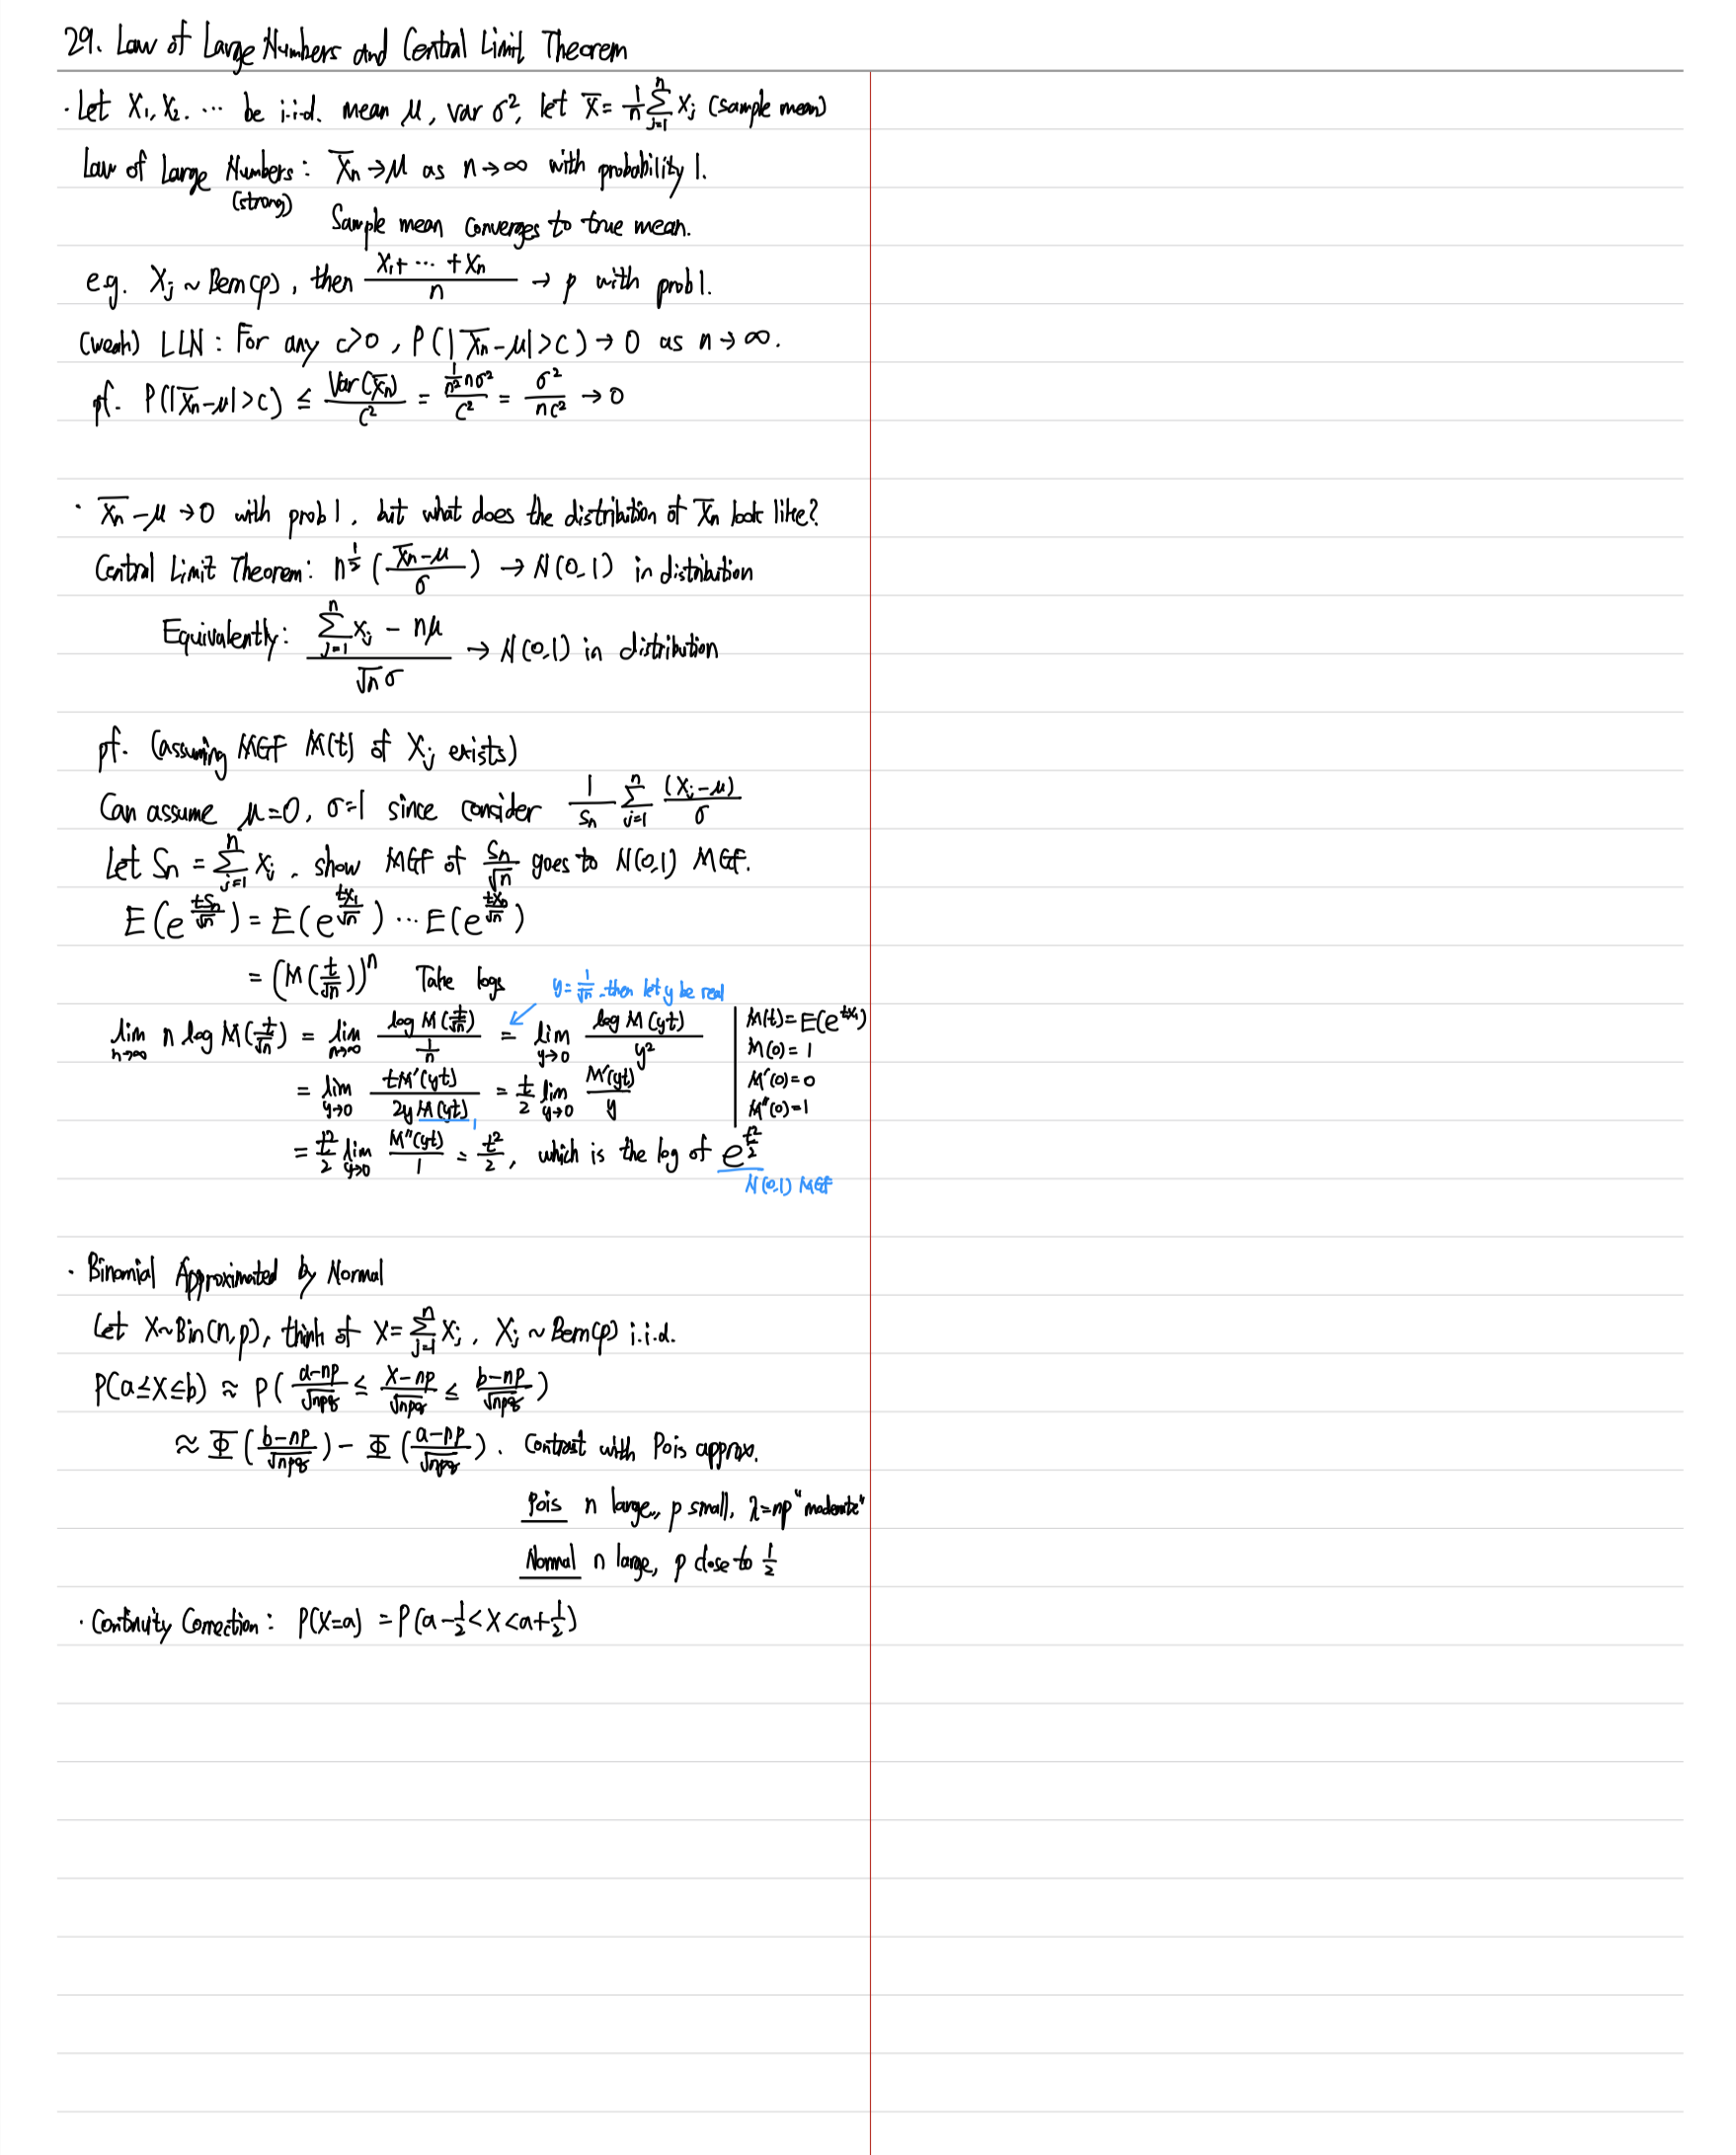 29. Law of Large Numbers and Central Limit Theorem
· Let X₁, X₂, ⋯ be i.i.d. mean μ, var σ², let X̄ = 1/n Σ_{j=1}^n Xⱼ (sample mean)
Law of Large Numbers : X̄n → μ as n → ∞ with probability 1.
(strong)
Sample mean converges to true mean.
e.g. Xⱼ ~ Bern(p), then (X₁ + ⋯ + Xn)/n → p with prob 1.
(weak) LLN : For any c > 0, P(|X̄n - μ| > c) → 0 as n → ∞.
pf. P(|X̄n - μ| > c) ≤ Var(X̄n)/c² = (1/n² nσ²)/c² = σ²/(nc²) → 0
· X̄n - μ → 0 with prob 1, but what does the distribution of X̄n look like?
Central Limit Theorem: n^{1/2} ((X̄n - μ)/σ) → N(0,1) in distribution
Equivalently: (Σ_{j=1}^n Xⱼ - nμ)/(√n σ) → N(0,1) in distribution
pf. (assuming MGF M(t) of Xⱼ exists)
Can assume μ=0, σ=1 since consider 1/Sn Σ_{j=1}^n (Xⱼ - μ)/σ
Let Sn = Σ_{j=1}^n Xⱼ, show MGF of Sn/√n goes to N(0,1) MGF.
E(e^{tSn/√n}) = E(e^{tX₁/√n}) ⋯ E(e^{tXn/√n})
= (M(t/√n))^n Take logs
y = 1/√n, then let y be real
lim_{n→∞} n log M(t/√n) = lim_{n→∞} (log M(t/√n))/(1/n) = lim_{y→0} (log M(yt))/y²
= lim_{y→0} (tM'(yt))/(2y M(yt)) = t/2 lim_{y→0} M'(yt)/y
1
= t²/2 lim_{y→0} M''(yt)/1 = t²/2, which is the log of e^{t²/2}
N(0,1) MGF
M(t) = E(e^{tX₁})
M(0) = 1
M'(0) = 0
M''(0) = 1
· Binomial Approximated by Normal
Let X~Bin(n,p), think of X = Σ_{j=1}^n Xⱼ, Xⱼ ~ Bern(p) i.i.d.
P(a≤X≤b) ≈ P((a-np)/√npq ≤ (X-np)/√npq ≤ (b-np)/√npq)
≈ Φ((b-np)/√npq) - Φ((a-np)/√npq). Contrast with Pois approx.
Pois n large, p small, λ=np "moderate"
Normal n large, p close to 1/2
· Continuity Correction : P(X=a) = P(a-1/2 < X < a+1/2)